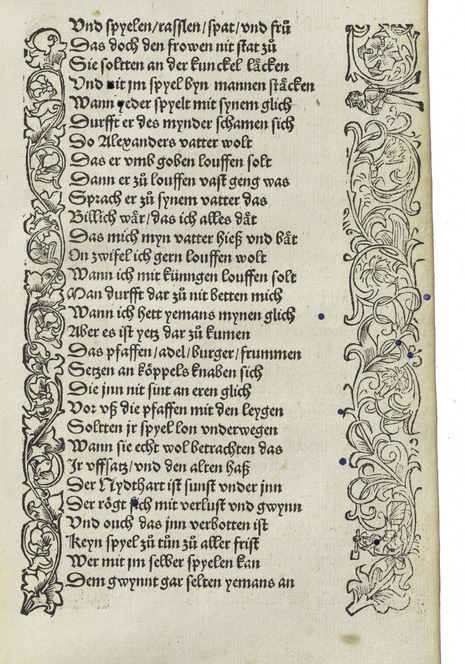 Vnd spyelen/rasslen/spat/vnd frů
Das doch den frowen nit stat zů
Sie soltten an der kunckel läcken
Vnd nit jm spyel byn mannen stäcken
Wann yeder spyelt mit synem glich
Durfft er des mynder schamen sich
Do Alexanders vatter wolt
Das er vmb goben louffen solt
Dann er zů louffen vast geng was
Sprach er zů synem vatter das
Billich wår/das ich alles dåt
Das mich myn vatter hieß vnd båt
On zwifel ich gern louffen wolt
Wann ich mit künngen louffen solt
Man durfft dar zů nit betten mich
Wann ich hett yemans mynen glich
Aber es ist yetz dar zů kumen
Das pfaffen/adel/burger/frummen
Setzen an köppels knaben sich
Die jnn nit sint an eren glich
Vor vß die pfaffen mit den leygen
Soltten jr spyel lon vnderwegen
Wann sie echt wol betrachten das
Jr vffsatz/vnd den alten haß
Der Nydthart ist sunst vnder jnn
Der rögt sich mit verlust vnd gwynn
Vnd ouch das jnn verbotten ist
Keyn spyel zů tůn zů aller frist
Wer mit jm selber spyelen kan
Dem gwynnt gar selten yemans an